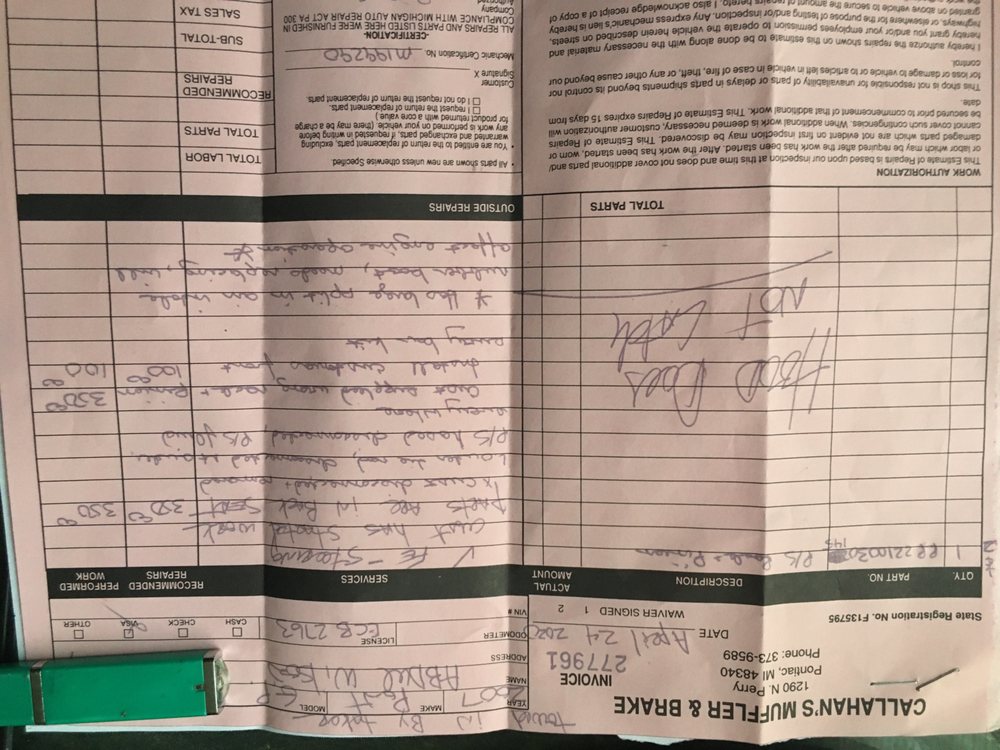 CALLAHAN'S MUFFLER & BRAKE
1290 N. Perry
Pontiac, MI 48340
Phone: 373-9589
INVOICE
277961
DATE April 24 2020
State Registration No. F135795
WAIVER SIGNED 1 2
IN By
YEAR 2007 MAKE MODEL
NAME
ADDRESS
ODOMETER LICENSE ECB 2763
VIN #
CASH CHECK VISA OTHER
QTY. PART NO. DESCRIPTION ACTUAL AMOUNT
1 P/S Rack + Pinion
HOOD Does
NOT Latch
TOTAL PARTS
SERVICES RECOMMENDED REPAIRS WORK PERFORMED
FE - Steering
Cust HAS started work
parts are in Back Seat 350 00 350 00
* Cust disconnected + removed
disconnected
P/S hoses disconnected, P/S fluid
everywhere
Cust supplied wrong rack + Pinion 350 00
Install customers front 100 00 100 00
sway bar kit
* Has large split in air intake
rubber boot, needs replacing, will
affect engine operation
OUTSIDE REPAIRS
WORK AUTHORIZATION
This Estimate of Repairs is based upon our inspection at this time and does not cover additional parts and/
or labor which may be required after the work has been started. After the work has been started, worn or
damaged parts which are not evident on first inspection may be discovered. This Estimate of Repairs
cannot cover such contingencies. When additional work is deemed necessary, customer authorization will
be secured prior to commencement of that additional work. This Estimate of Repairs expires 15 days from
date.
This shop is not responsible for unavailability of parts or delays in parts shipments beyond its control nor
for loss or damage to vehicle or to articles left in vehicle in case of fire, theft, or any other cause beyond our
control.
I hereby authorize the repairs shown on this estimate to be done along with the necessary material and
hereby grant you and/or your employees permission to operate the vehicle herein described on streets,
highways, or elsewhere for the purpose of testing and/or inspection. Any express mechanic's lien is hereby
granted on above vehicle to secure the amount of repairs hereto, I also acknowledge receipt of a copy of
• All parts shown are new unless otherwise Specified.
• You are entitled to the return of replacement parts, excluding
warrantied and exchanged parts, if requested in writing before
any work is performed on your vehicle. (there may be a charge
for product returned with a core value.)
I request the return of replacement parts.
I do not request the return of replacement parts.
Customer
Signature X
Mechanic Certification No. M199290
-CERTIFICATION-
ALL REPAIRS AND PARTS LISTED HERE WERE FURNISHED IN
COMPLIANCE WITH MICHIGAN AUTO REPAIR ACT PA 300
Company
Authorized
TOTAL LABOR
TOTAL PARTS
RECOMMENDED REPAIRS
SUB-TOTAL
SALES TAX